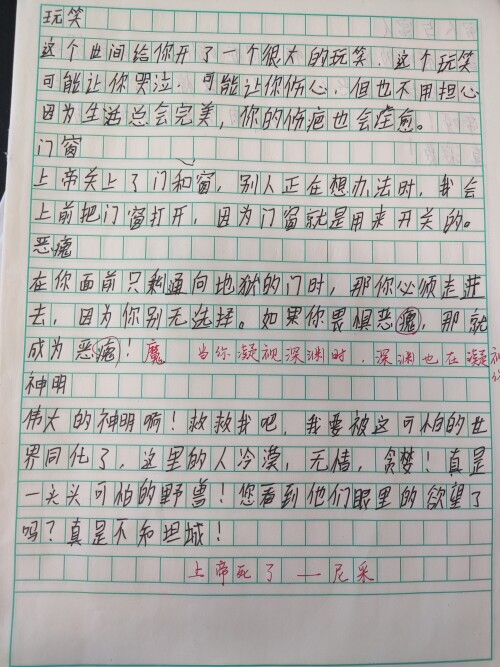 玩笑
这个世间给你开了一个很大的玩笑，这个玩笑
可能让你哭泣，可能让你伤心，但也不用担心
因为生活总会完美，你的伤疤也会痊愈。
门窗
上帝关上了门和窗，别人正在想办法时，我会
上前把门窗打开，因为门窗就是用来开关的。
恶魔
在你面前只剩通向地狱的门时，那你必须走进
去，因为你别无选择。如果你畏惧恶魔，那就
成为恶魔！魔 当你凝视深渊时，深渊也在凝视你
神明
伟大的神明啊！救救我吧，我要被这可怕的世
界同化了，这里的人冷漠，无情，贪婪！真是
一头头可怕的野兽！您看到他们眼里的欲望了
吗？真是不知坦诚！
上帝死了——尼采